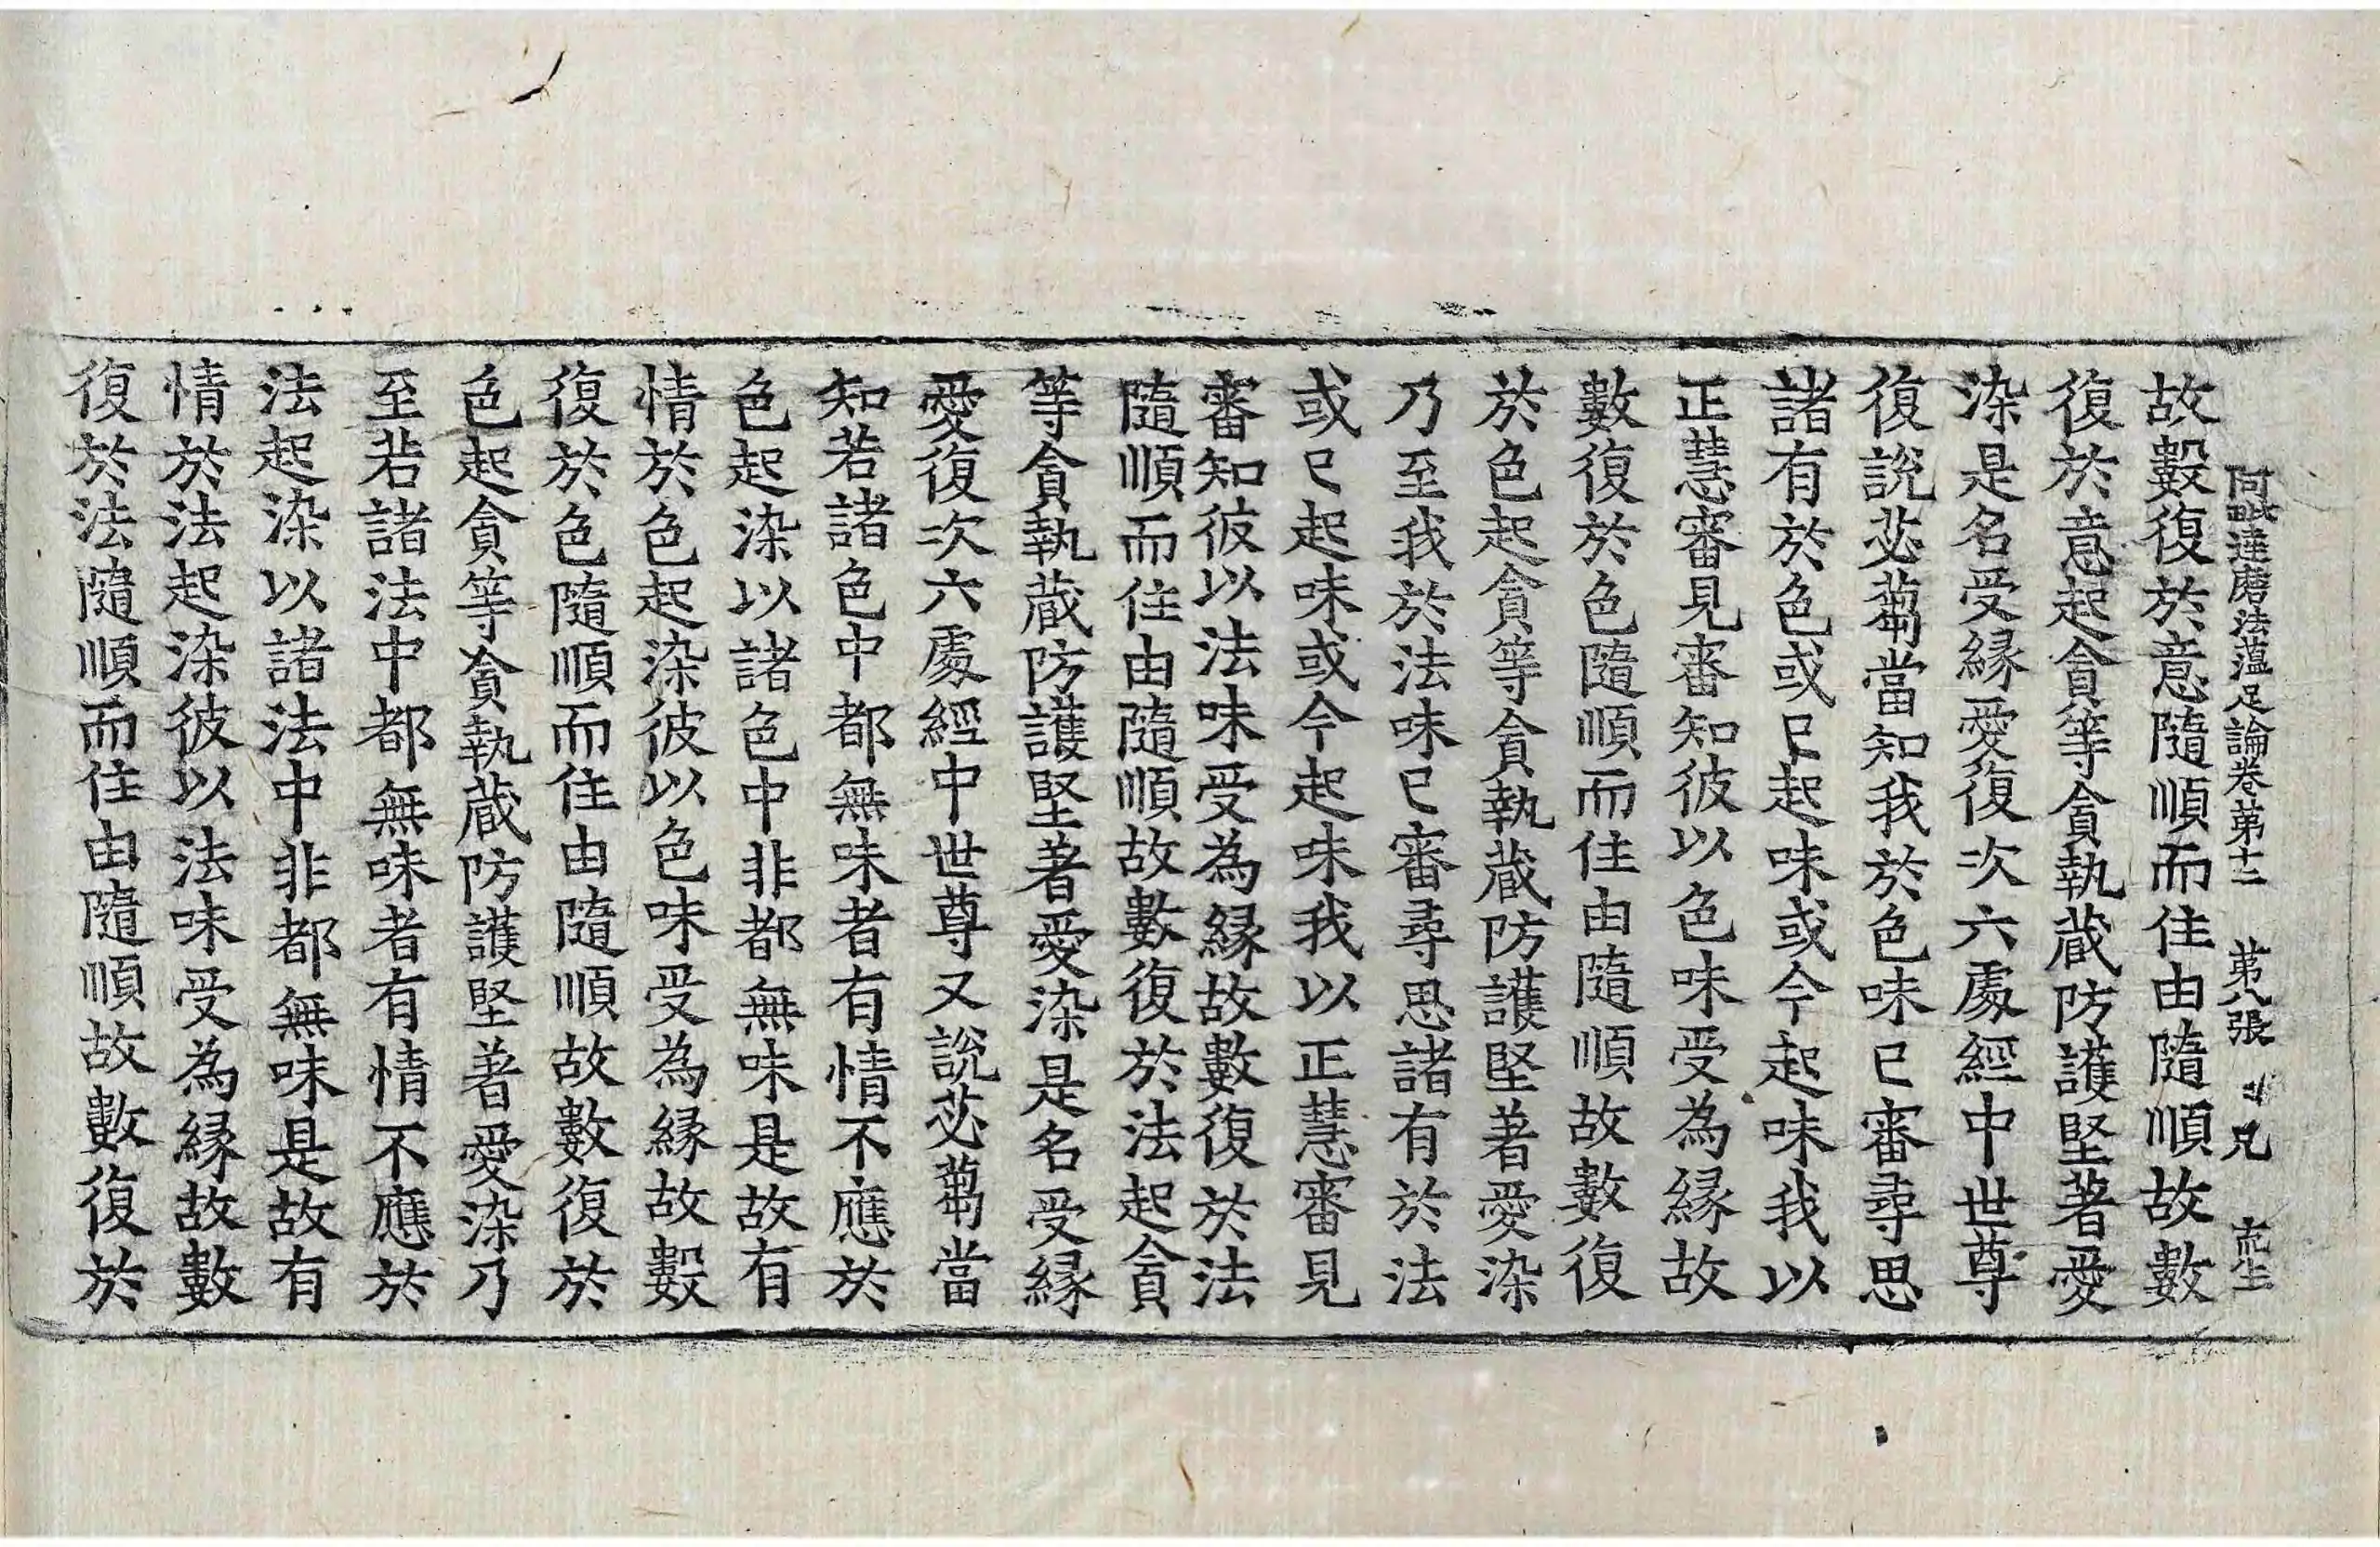 阿毗達磨法蘊足論卷第十二 第八張 兄
故數復於意隨順而住由隨順故數
復於意起貪等貪執蔵防護堅著愛
染是名受緣愛復次六處經中世尊
復說苾蒭當知我於色味已審尋思
諸有於色或已起味或今起味我以
正慧審見審知彼以色味受為緣故
數復於色隨順而住由隨順故數復
於色起貪等貪執蔵防護堅著愛染
乃至我於法味已審尋思諸有於法
或已起味或今起味我以正慧審見
審知彼以法味受為緣故數復於法
隨順而住由隨順故數復於法起貪
等貪執蔵防護堅著愛染是名受緣
愛復次六處經中世尊又說苾蒭當
知若諸色中都無味者有情不應於
色起染以諸色中非都無味是故有
情於色起染彼以色味受為緣故數
復於色隨順而住由隨順故數復於
色起貪等貪執蔵防護堅著愛染乃
至若諸法中都無味者有情不應於
法起染以諸法中非都無味是故有
情於法起染彼以法味受為緣故數
復於法隨順而住由隨順故數復於